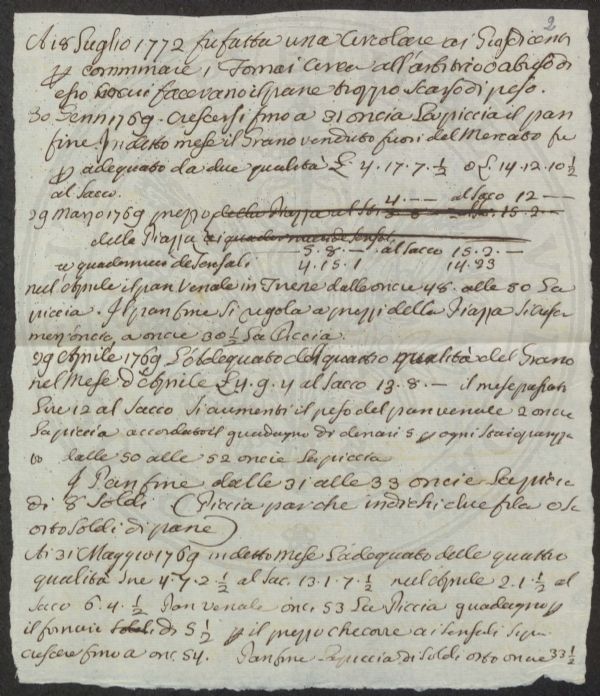 2
A i 8 Luglio 1772 fu fatta una Circolare ai Giusdicenti
p comminare i Fornai circa all'arbitrio o abuso di
essi facevano il pane troppo scarso di peso.
30 Genn 1769. crescersi fino a 31 oncia La piccia il pan
fine. In detto mese il Grano venduto fuori del Mercato fu
p adequato da due qualità £ 4. 17. 7. ½ e £ 14. 12. 10 ½
al Sacco.
29 Marzo 1769 prezzo della Piazza al St. 4. -- al Saco 12 --
della Piazza ai quadernucci de Sensali 5. 8. -- al Sacco 15. 2. --
e quadernucci de Sensali 4. 15. 1 14. 23
nell'Aprile il pan Venale in Firenze dalle oncie 48. alle 50 La
piccia. Il pan fine si regola a prezzi della Piazza
mezz'oncia, a oncie 30 ½ La Piccia.
29 Aprile 1769 L'adequato del quattro qualità del Grano
nel Mese d'Aprile £ 4. 9. 4 al Sacco 13. 8. -- il mese passato
Lire 12 al Sacco si aumenti il peso del pan venale 2 oncie
La piccia accordato il guadagno di denari 5 p ogni
dalle 50 alle 52 oncie La piccia
Pan fine dalle 31 alle 33 oncie La piccia
di 8 Soldi (Piccia par che indichi due fila o sia
otto Soldi di pane)
A i 31 Maggio 1769 in detto mese L'adequato delle quattro
qualità Lire 4. 7. 2. ½ al Sac. 13. 1. 7. ½ nell'Aprile 2. 1. ½ al
Saco 6. 4. ½ Pan venale onc. 53 La Piccia guadagno p
il fornaio di 5 ½ p il prezzo che corre a i Sensali
crescere fino a onc. 54. Pan fine La piccia di Soldi otto oncie 33 ½